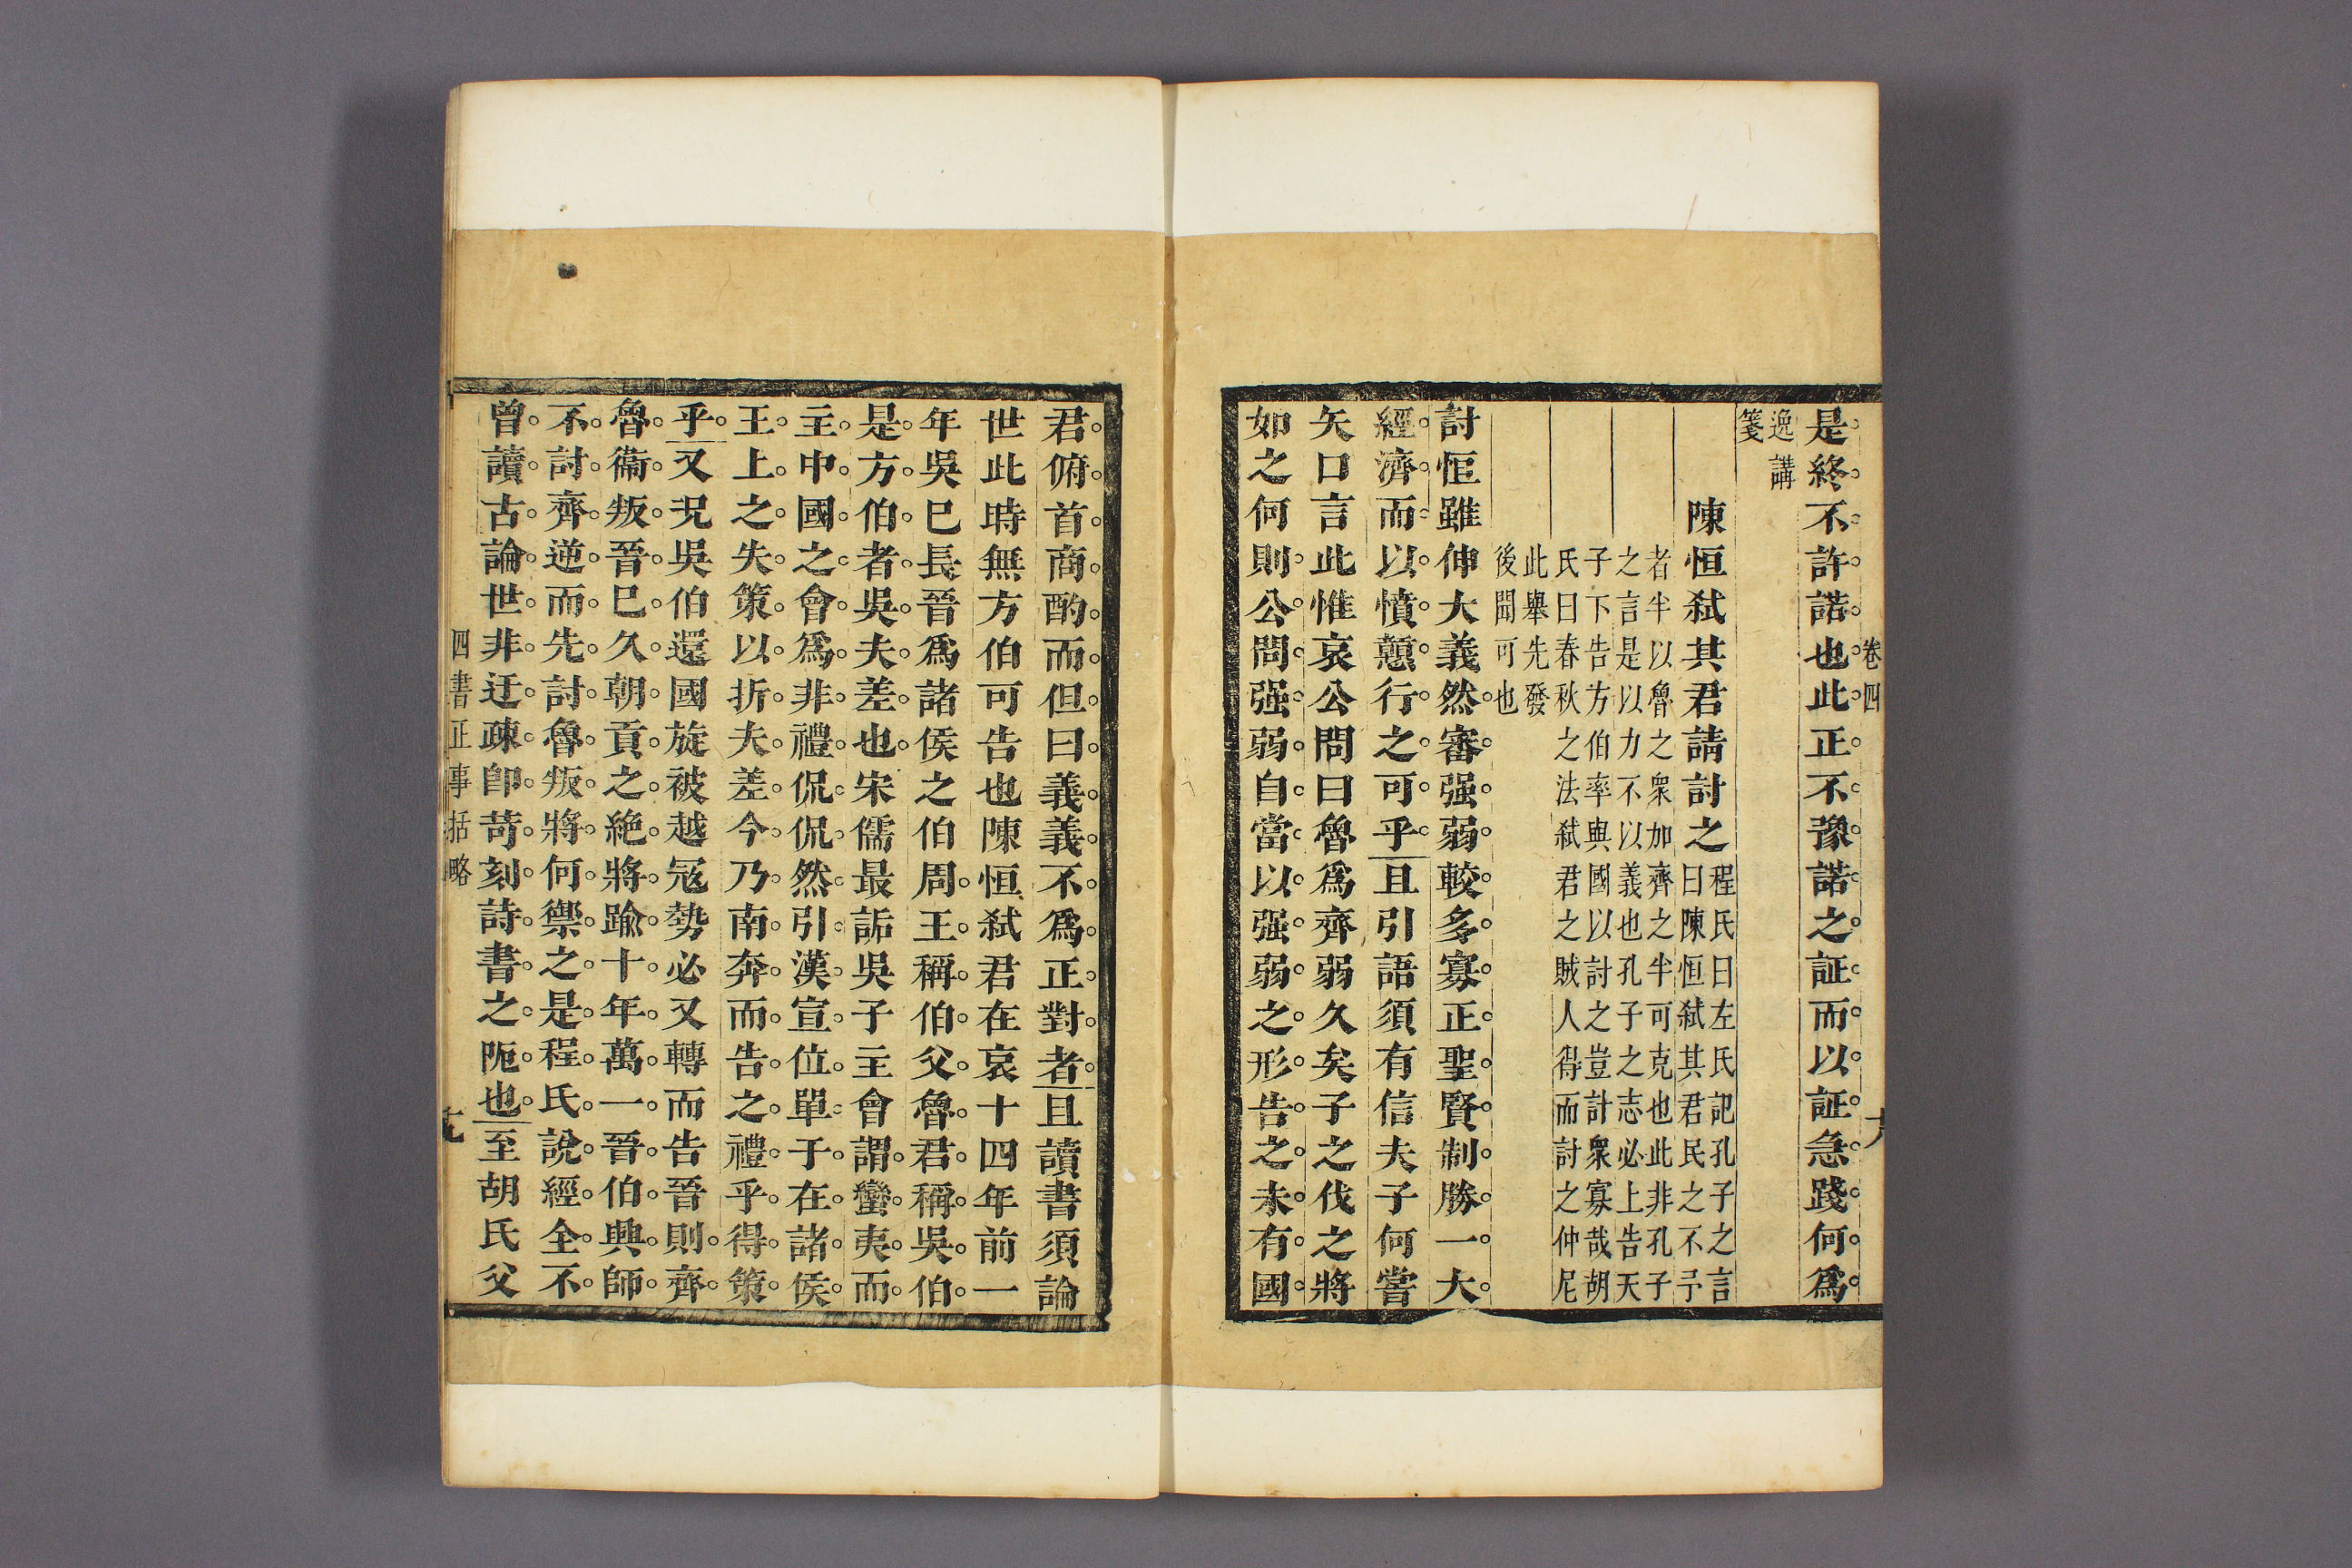 卷四
是終不許諾也此正不豫諾之証而以証急踐何爲
逸講
箋
陳恒弑其君請討之
程氏曰左氏記孔子之言
曰陳恒弑其君民之不予
者半以魯之衆加齊之半可克也此非孔子
之言是以力不以義也孔子之志必上告天
子下告方伯率與國以討之豈計衆寡哉胡
氏曰春秋之法弑君之賊人得而討之仲尼
此舉先發
後聞可也
討恒雖仲大義然審强弱較多寡正聖賢制勝一大
經濟而以憤懑行之可乎且引語須有信夫子何嘗
矢口言此惟哀公問曰魯爲齊弱久矣子之伐之將
如之何則公問强弱自當以强弱之形告之未有國
君俯首商酌而但曰義義不爲正對者且讀書須論
世此時無方伯可告也陳恒弑君在哀十四年前一
年吳巳長晉爲諸侯之伯周王稱伯父魯君稱吳伯
是方伯者吳夫差也宋儒最詬吳子主會謂蠻夷而
主中國之會爲非禮侃侃然引漢宣位單于在諸侯
王上之失策以折夫差今乃南奔而告之禮乎得策
乎又况吳伯還國旋被越冦勢必又轉而告晉則齊
魯衞叛晉巳久朝貢之絶將踰十年萬一晉伯興師
不討齊逆而先討魯叛將何禦之是程氏說經全不
曾讀古論世非迂疎卽苛刻詩書之阨也至胡氏父
四書正事括略